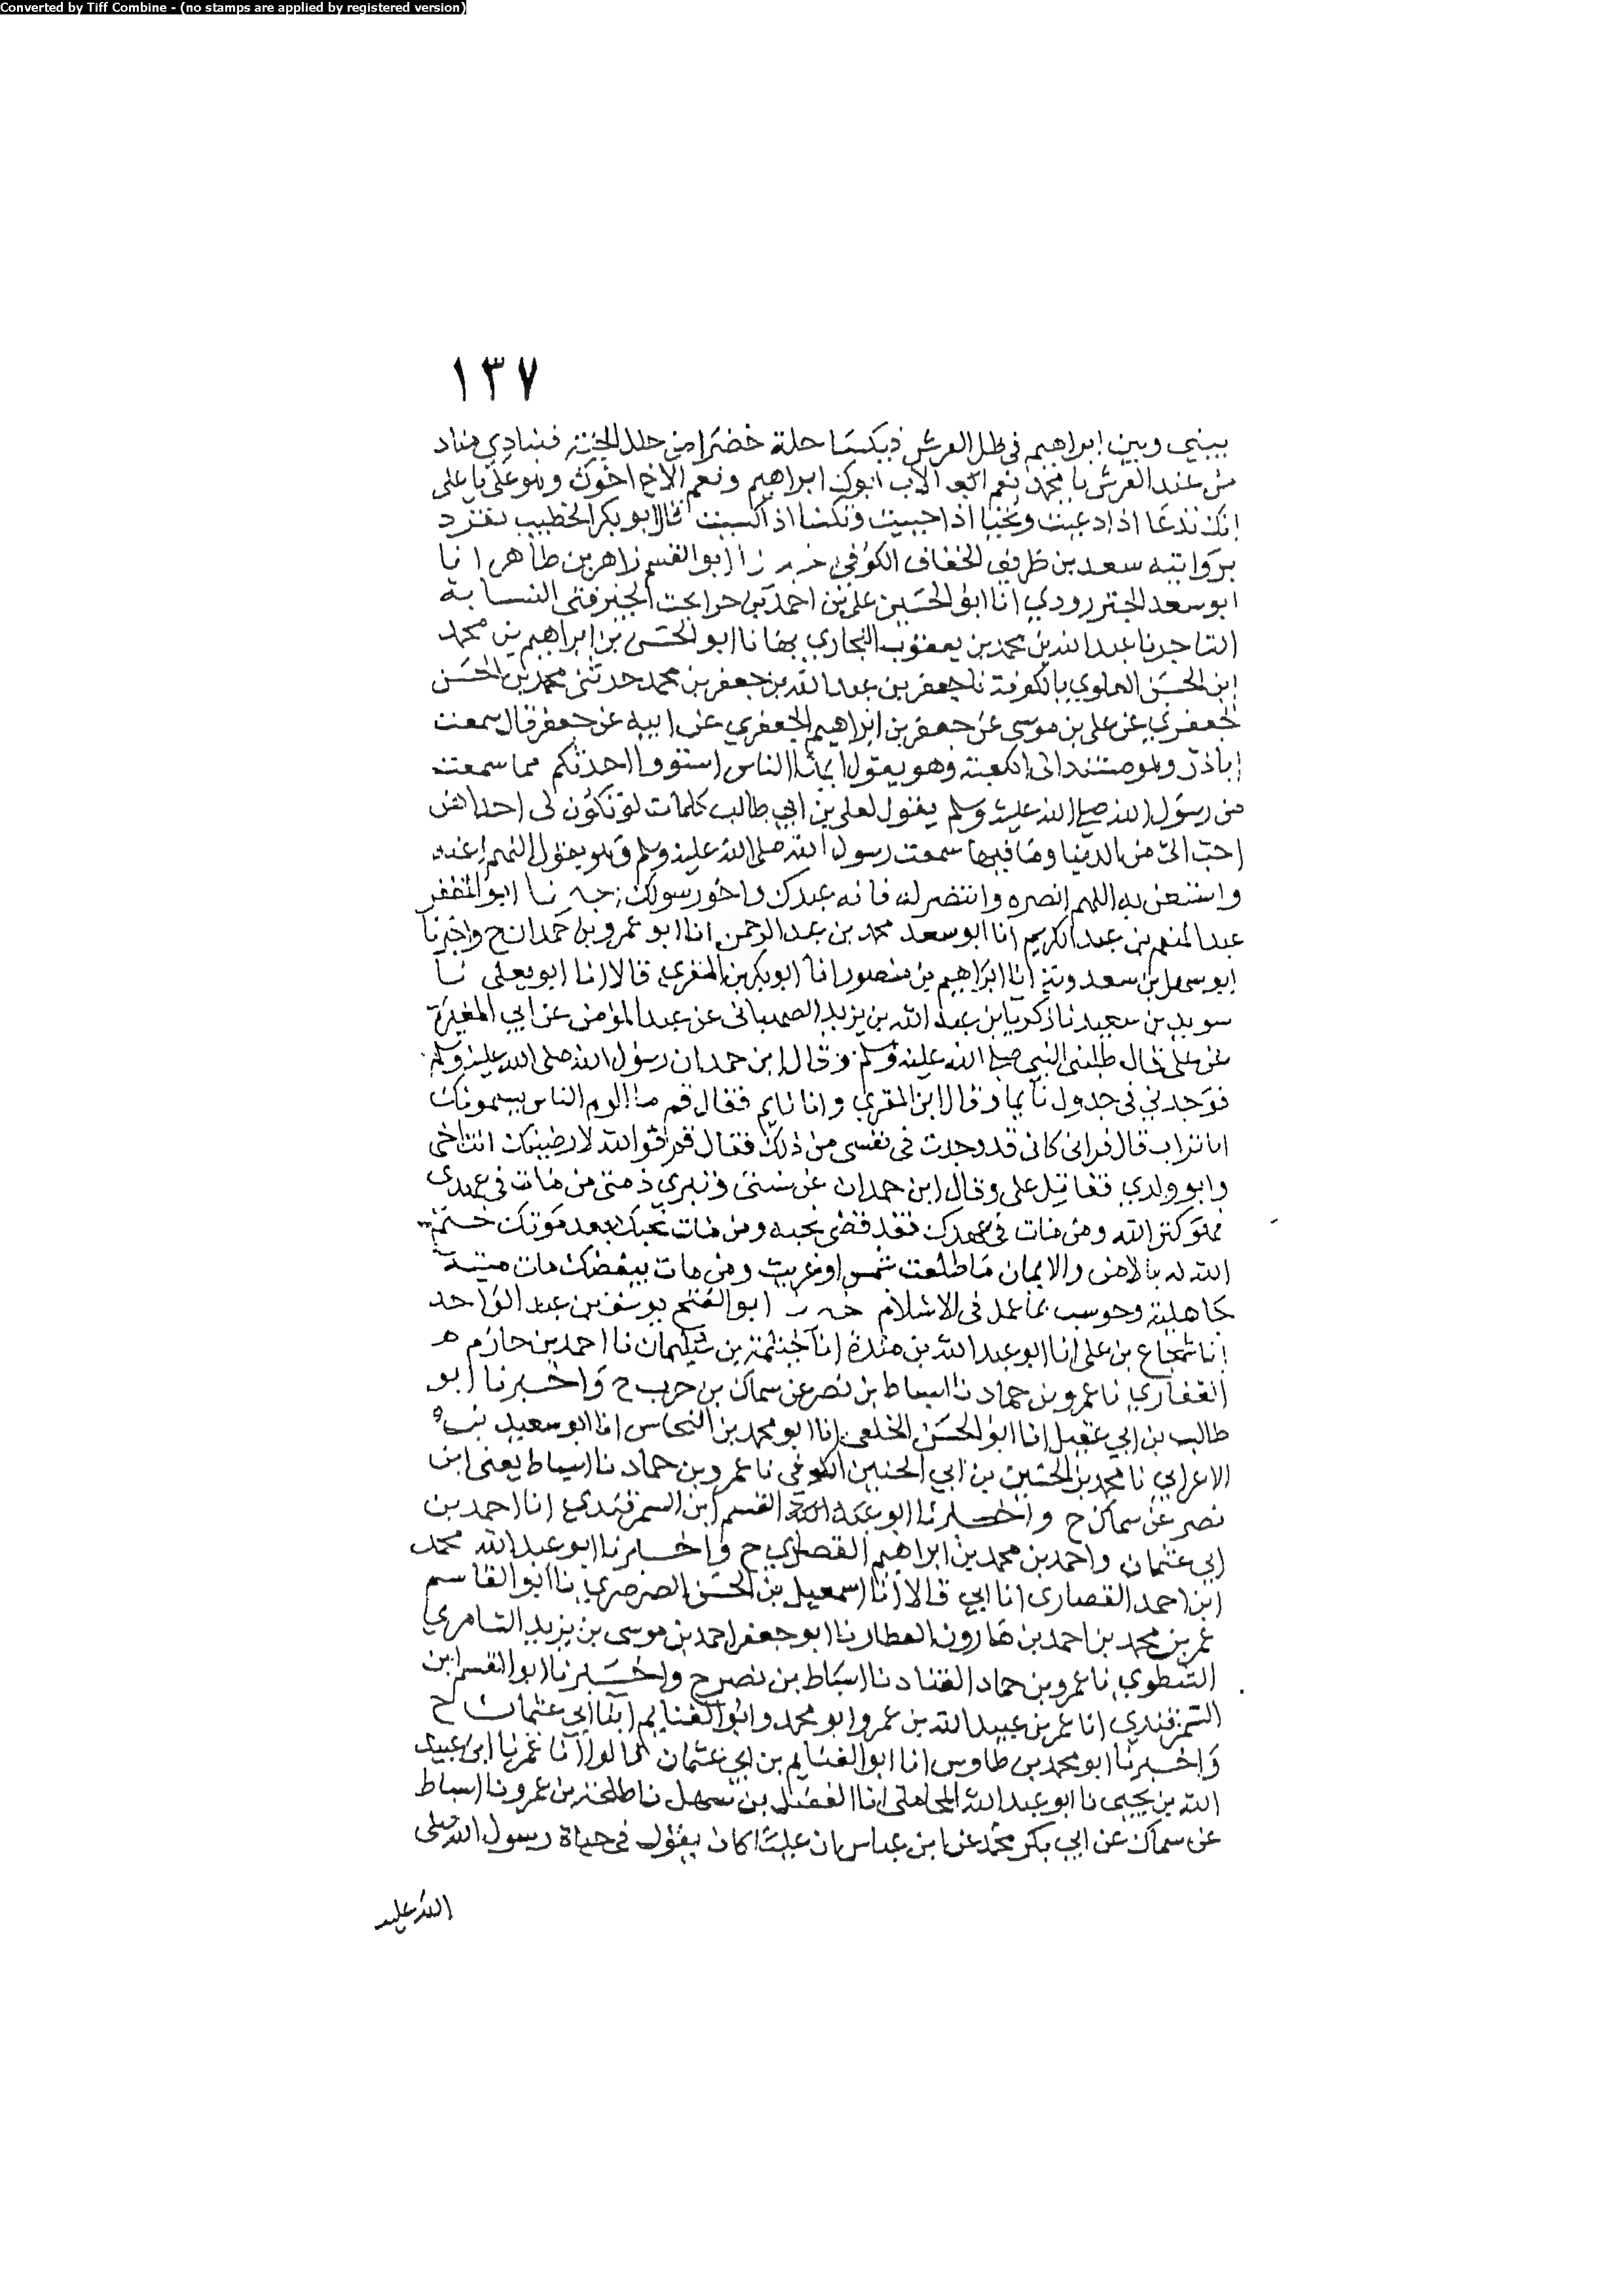 Converted by Tiff Combine - (no stamps are applied by registered version)
١٣٧
بيني وبين ابراهيم في ظل العرش ويكسا حلة خضرا من حلل الجنة فينادي مناد
من عند العرش يا محمد نعم الاب ابوك ابراهيم ونعم الاخ اخوك وهو علي يا علي
انك تدعا اذا دعيت وتحيا اذا حييت وتكسا اذا كسيت قال ابو بكر الخطيب تفرد
بروايته سعد بن طريف الخفاف الكوفي اخبرنا ابو القسم زاهر بن طاهر انا
ابو سعد الجنزرودي انا ابو الحسين علي بن احمد بن الجيرفتي النسابة
التاجر نا عبد الله بن محمد بن يعقوب البخاري بها نا ابو الحسن بن ابراهيم بن محمد
ابن الحسن العلوي بالكوفة نا جعفر بن عبد الله بن جعفر بن محمد حدثني محمد بن الحسن
الجعفري عن علي بن موسى عن جعفر بن ابراهيم الجعفري عن ابيه عن جعفر قال سمعت
ابا ذر وهو مستند الى الكعبة وهو يقول ايها الناس استووا احدثكم مما سمعت
من رسول الله صلى الله عليه وسلم يقول لعلي بن ابي طالب كلمات لو تكون لي احداهن
احب الي من الدنيا وما فيها سمعت رسول الله صلى الله عليه وسلم وهو يقول اللهم اعنه
واستعن به اللهم انصره وانتصر له فانه عبدك واخو رسولك اخبرنا ابو المظفر
عبد المنعم بن عبد الكريم انا ابو سعد محمد بن عبد الرحمن انا ابو عمرو بن حمدان ح واخبرنا
ابو سهل بن سعدوية انا ابراهيم بن منصور انا ابو بكر بن المقري قالا انا ابو يعلى نا
سويد بن سعيد نا زكريا بن عبد الله بن يزيد الصهباني عن عبد المؤمن عن ابي المغيرة
عن علي قال طلبني النبي صلى الله عليه وسلم وقال ابن حمدان رسول الله صلى الله عليه وسلم
فوجدني في جدول نايما وقال ابن المقري وانا نايم فقال قم ما الوم الناس يسمونك
ابا تراب قال فراني كاني قد وجدت في نفسي من ذلك فقال قم فوالله لارضينك انت اخي
وابو ولدي تقاتل على وقال ابن حمدان عن سنتي وتبري ذمتي من مات في عهدي
فهو كنز الله ومن مات في عهدك فقد قضى نحبه ومن مات يحبك بعد موتك ختم
الله له بالامن والايمان ما طلعت شمس او غربت ومن مات ببغضك مات ميتة
جاهلية وحوسب بما عمل في الاسلام اخبرنا ابو الفتح يوسف بن عبد الواحد
انا شجاع بن علي انا ابو عبد الله بن مندة انا خيثمة بن سليمان نا احمد بن حازم
الغفاري نا عمرو بن حماد نا اسباط بن نصر عن سماك بن حرب ح واخبرنا ابو
طالب بن ابي عقيل انا ابو الحسن الخلعي انا ابو محمد بن النحاس انا ابو سعيد بن
الاعرابي نا محمد بن الحسين بن ابي الحنين الكوفي نا عمرو بن حماد نا اسباط يعني ابن
نصر عن سماك ح واخبرنا ابو القسم ابن السمرقندي انا احمد بن
ابي عثمان واحمد بن محمد بن ابراهيم القصاري ح واخبرنا ابو عبد الله محمد
ابن احمد القصاري انا ابي قالا انا اسمعيل بن الحسن الصرصري نا ابو القاسم
عمر بن محمد بن احمد بن هارون العطار نا ابو جعفر احمد بن موسى بن يزيد السامري
الشطوي نا عمرو بن حماد القناد نا اسباط بن نصر ح واخبرنا ابو القسم ابن
السمرقندي انا عمر بن عبيد الله بن عمر وابو محمد وابو الغنايم ابنا ابي عثمان ح
واخبرنا ابو محمد بن طاوس انا ابو الغنايم بن ابي عثمان قالوا انا عبيد
الله بن يحيى نا ابو عبد الله المحاملي انا الفضل بن سهل نا طلحة بن عمرو نا اسباط
عن سماك عن ابي بكر محمد عن ابن عباس ان عليا كان يقول في حياة رسول الله صلى
الله عليه